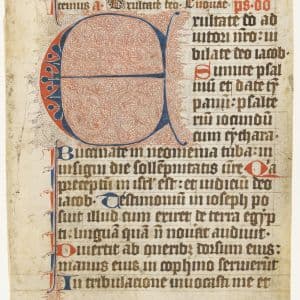 temus a. Exultate deo. Euouae ps. dd
Exultate deo ad
iutori nr̄o: iu
bilate deo iacob.
Sumite psal
mū et date tȳ
panū: psalte
riū iocundū
cum cythara.
Buccinate in neomenia tuba: in
insigni die sollēpnitatis vr̄e. Qa
preceptū in isrl̄ est: et iudiciū deo
iacob. Testimoniū in ioseph po
suit illud cum exiret de terra egyp
ti: linguā quā nō nouat audiuit.
Diuertit ab onerib⁊ dorsum eius:
manus eius in cophino seruierūt
In tribulacione inuocasti me et